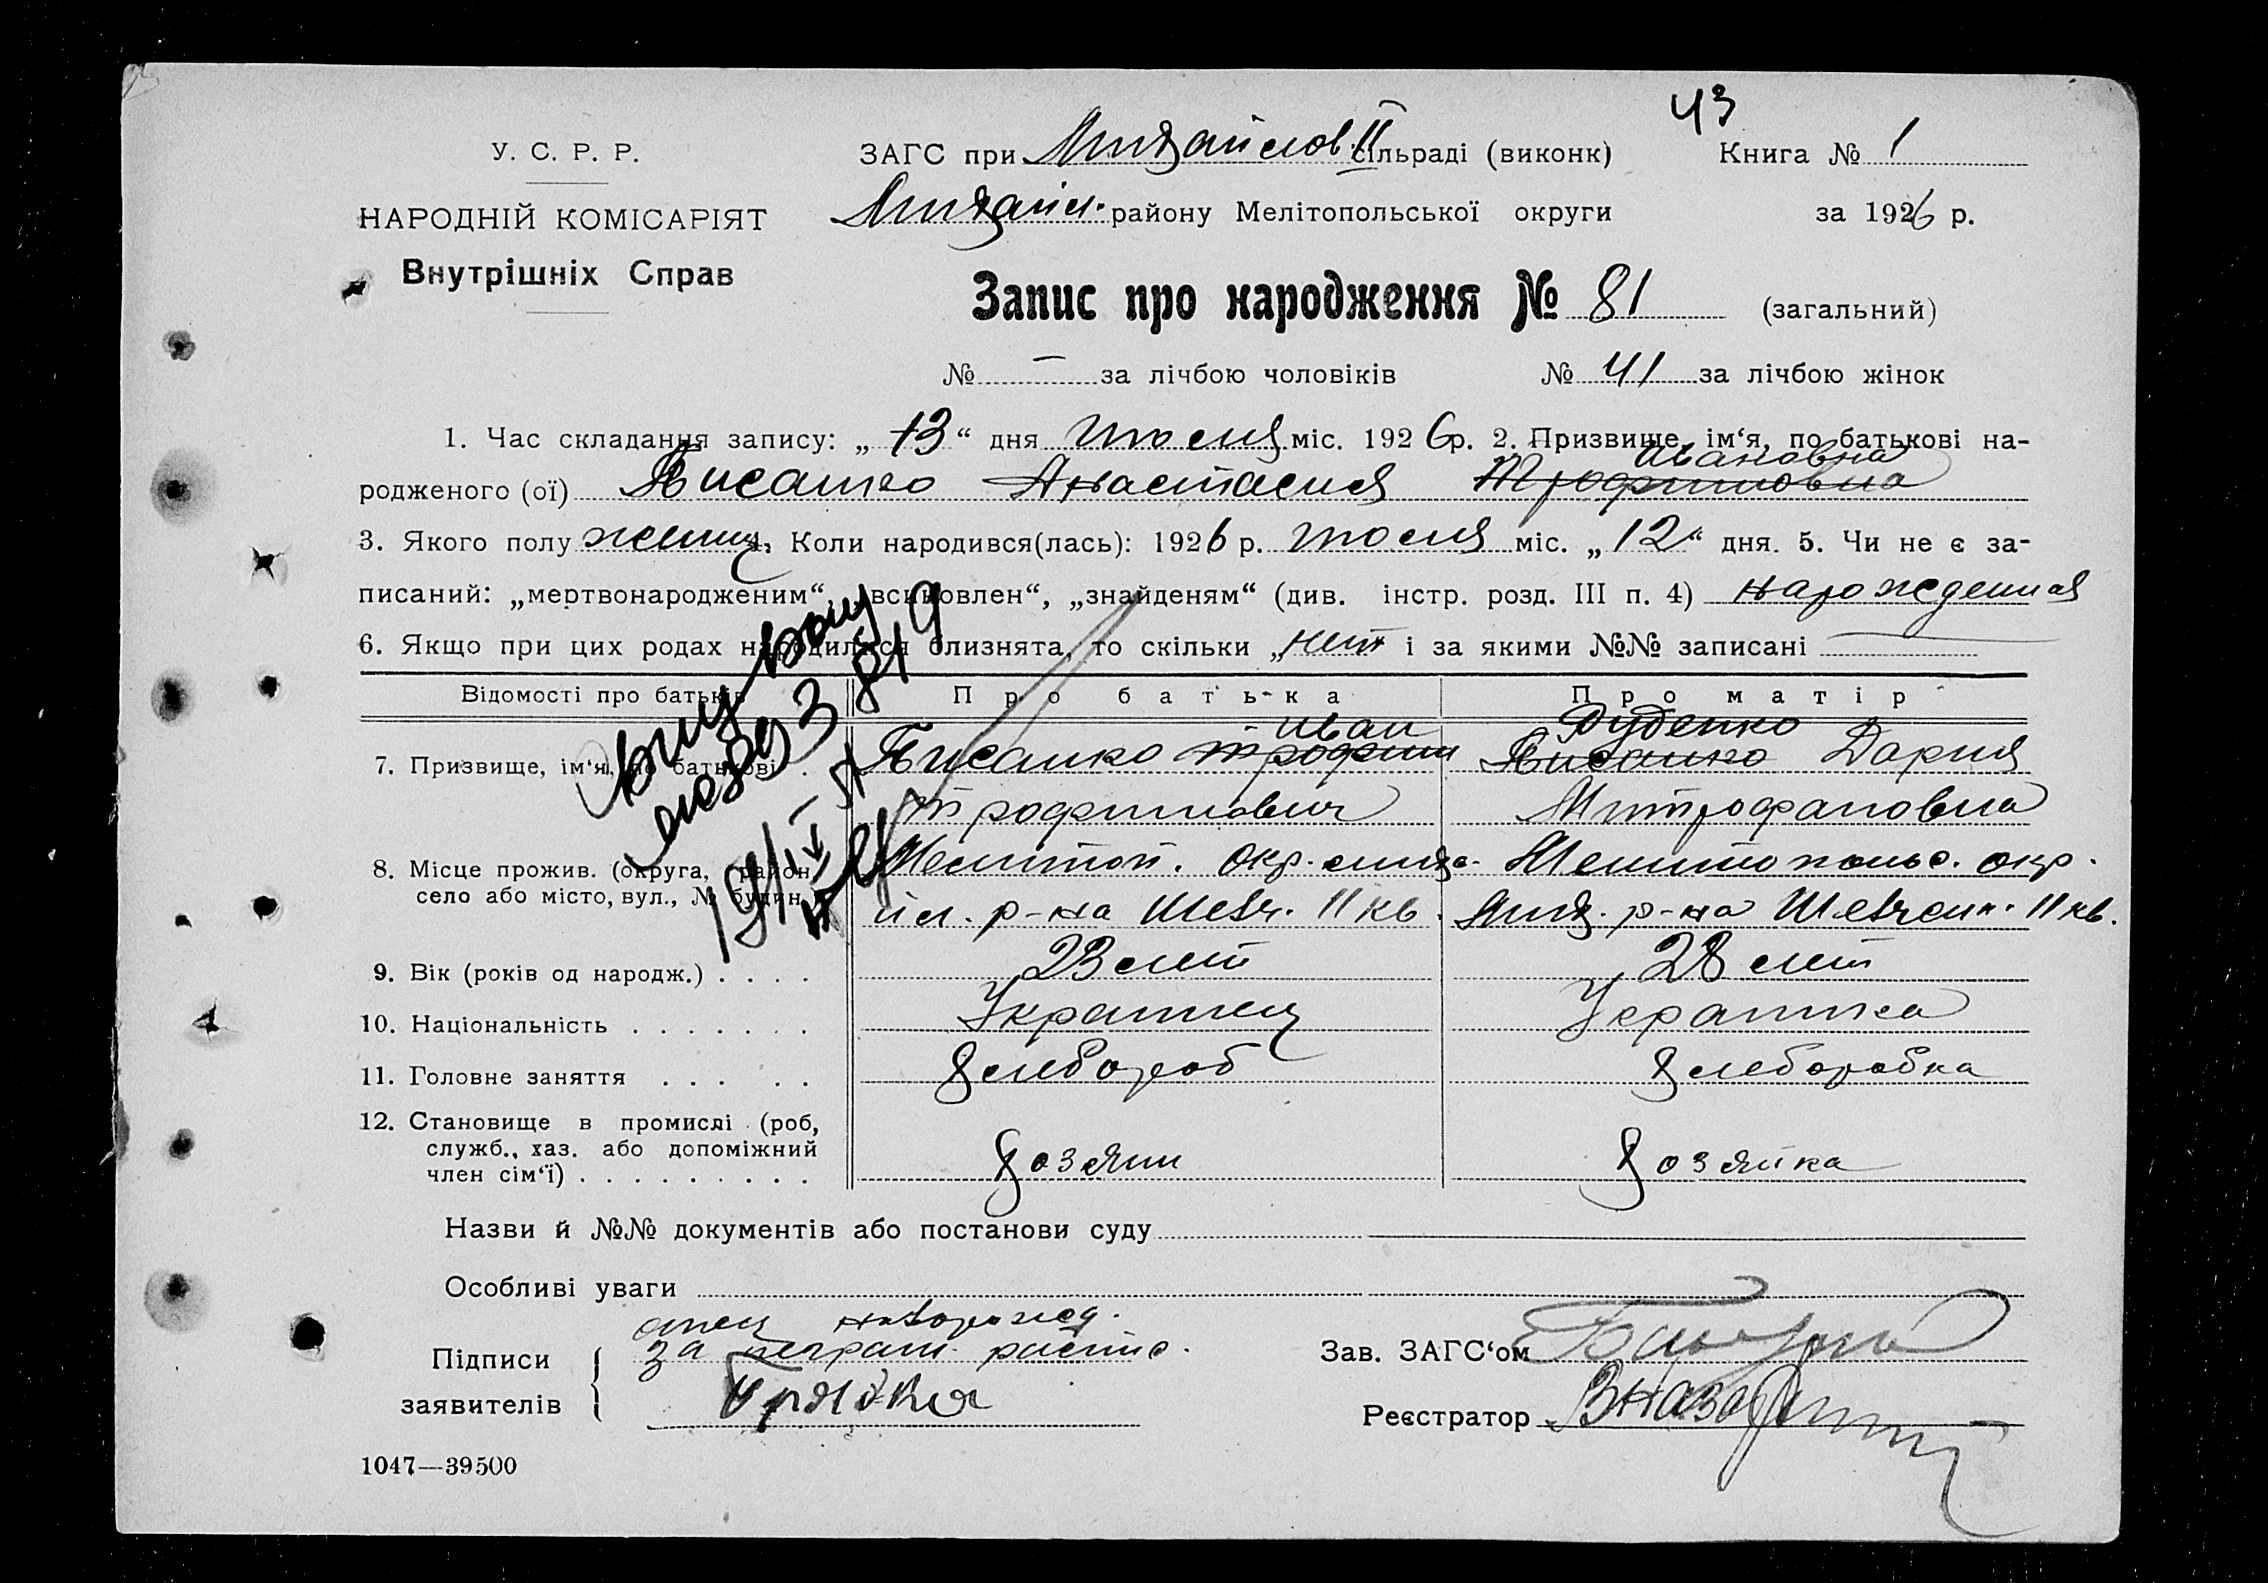 43
У. С. Р. Р.
ЗАГС при Михайлов. II сільраді (виконк) Книга № 1
НАРОДНІЙ КОМІСАРІЯТ
Михайл. району Мелітопольської округи за 1926 р.
Внутрішніх Справ
Запис про народження № 81 (загальний)
№ — за лічбою чоловіків № 41 за лічбою жінок
1. Час складання запису: „13“ дня июля міс. 1926 р. 2. Призвище, ім‘я, по батькові на-
Ивановна
родженого (ої) Писанко Анастасия Трофимовна
3. Якого полу женщ. 4. Коли народився(лась): 1926 р. июля міс. „12“ дня. 5. Чи не є за-
писаний: „мертвонародженим“, „всиновлен“, „знайденям“ (див. інстр. розд. III п. 4) нарожденная
6. Якщо при цих родах народилися близнята, то скільки „нет і за якими №№ записані
Відомості про батьків Про батька Про матір
Иван Руденко
7. Призвище, ім‘я, по батькові . Писанко Трофим Писанко Дария
Трофимович Митрофановна
8. Місце прожив. (округа, район, Мелитоп. окр. миха- Мелитопольс. окр.
село або місто, вул., № будин.) йл. р-на Шевч. II кв. Мих. р-на Шевченк. II кв.
9. Вік (років од народж.) . . . . 23 лет 28 лет
10. Національність . . . . . . . Украинец Украинка
11. Головне заняття . . . . . Хлебороб Хлеборобка
12. Становище в промислі (роб,
служб., хаз. або допоміжний
член сім‘ї) . . . . . . . . . Хозяин Хозяйка
Назви й №№ документів або постанови суду
Особливі уваги
отец новорожд.
Підписи за неграм. распис.
Зав. ЗАГС‘ом
заявителів
Реєстратор
1047—39500